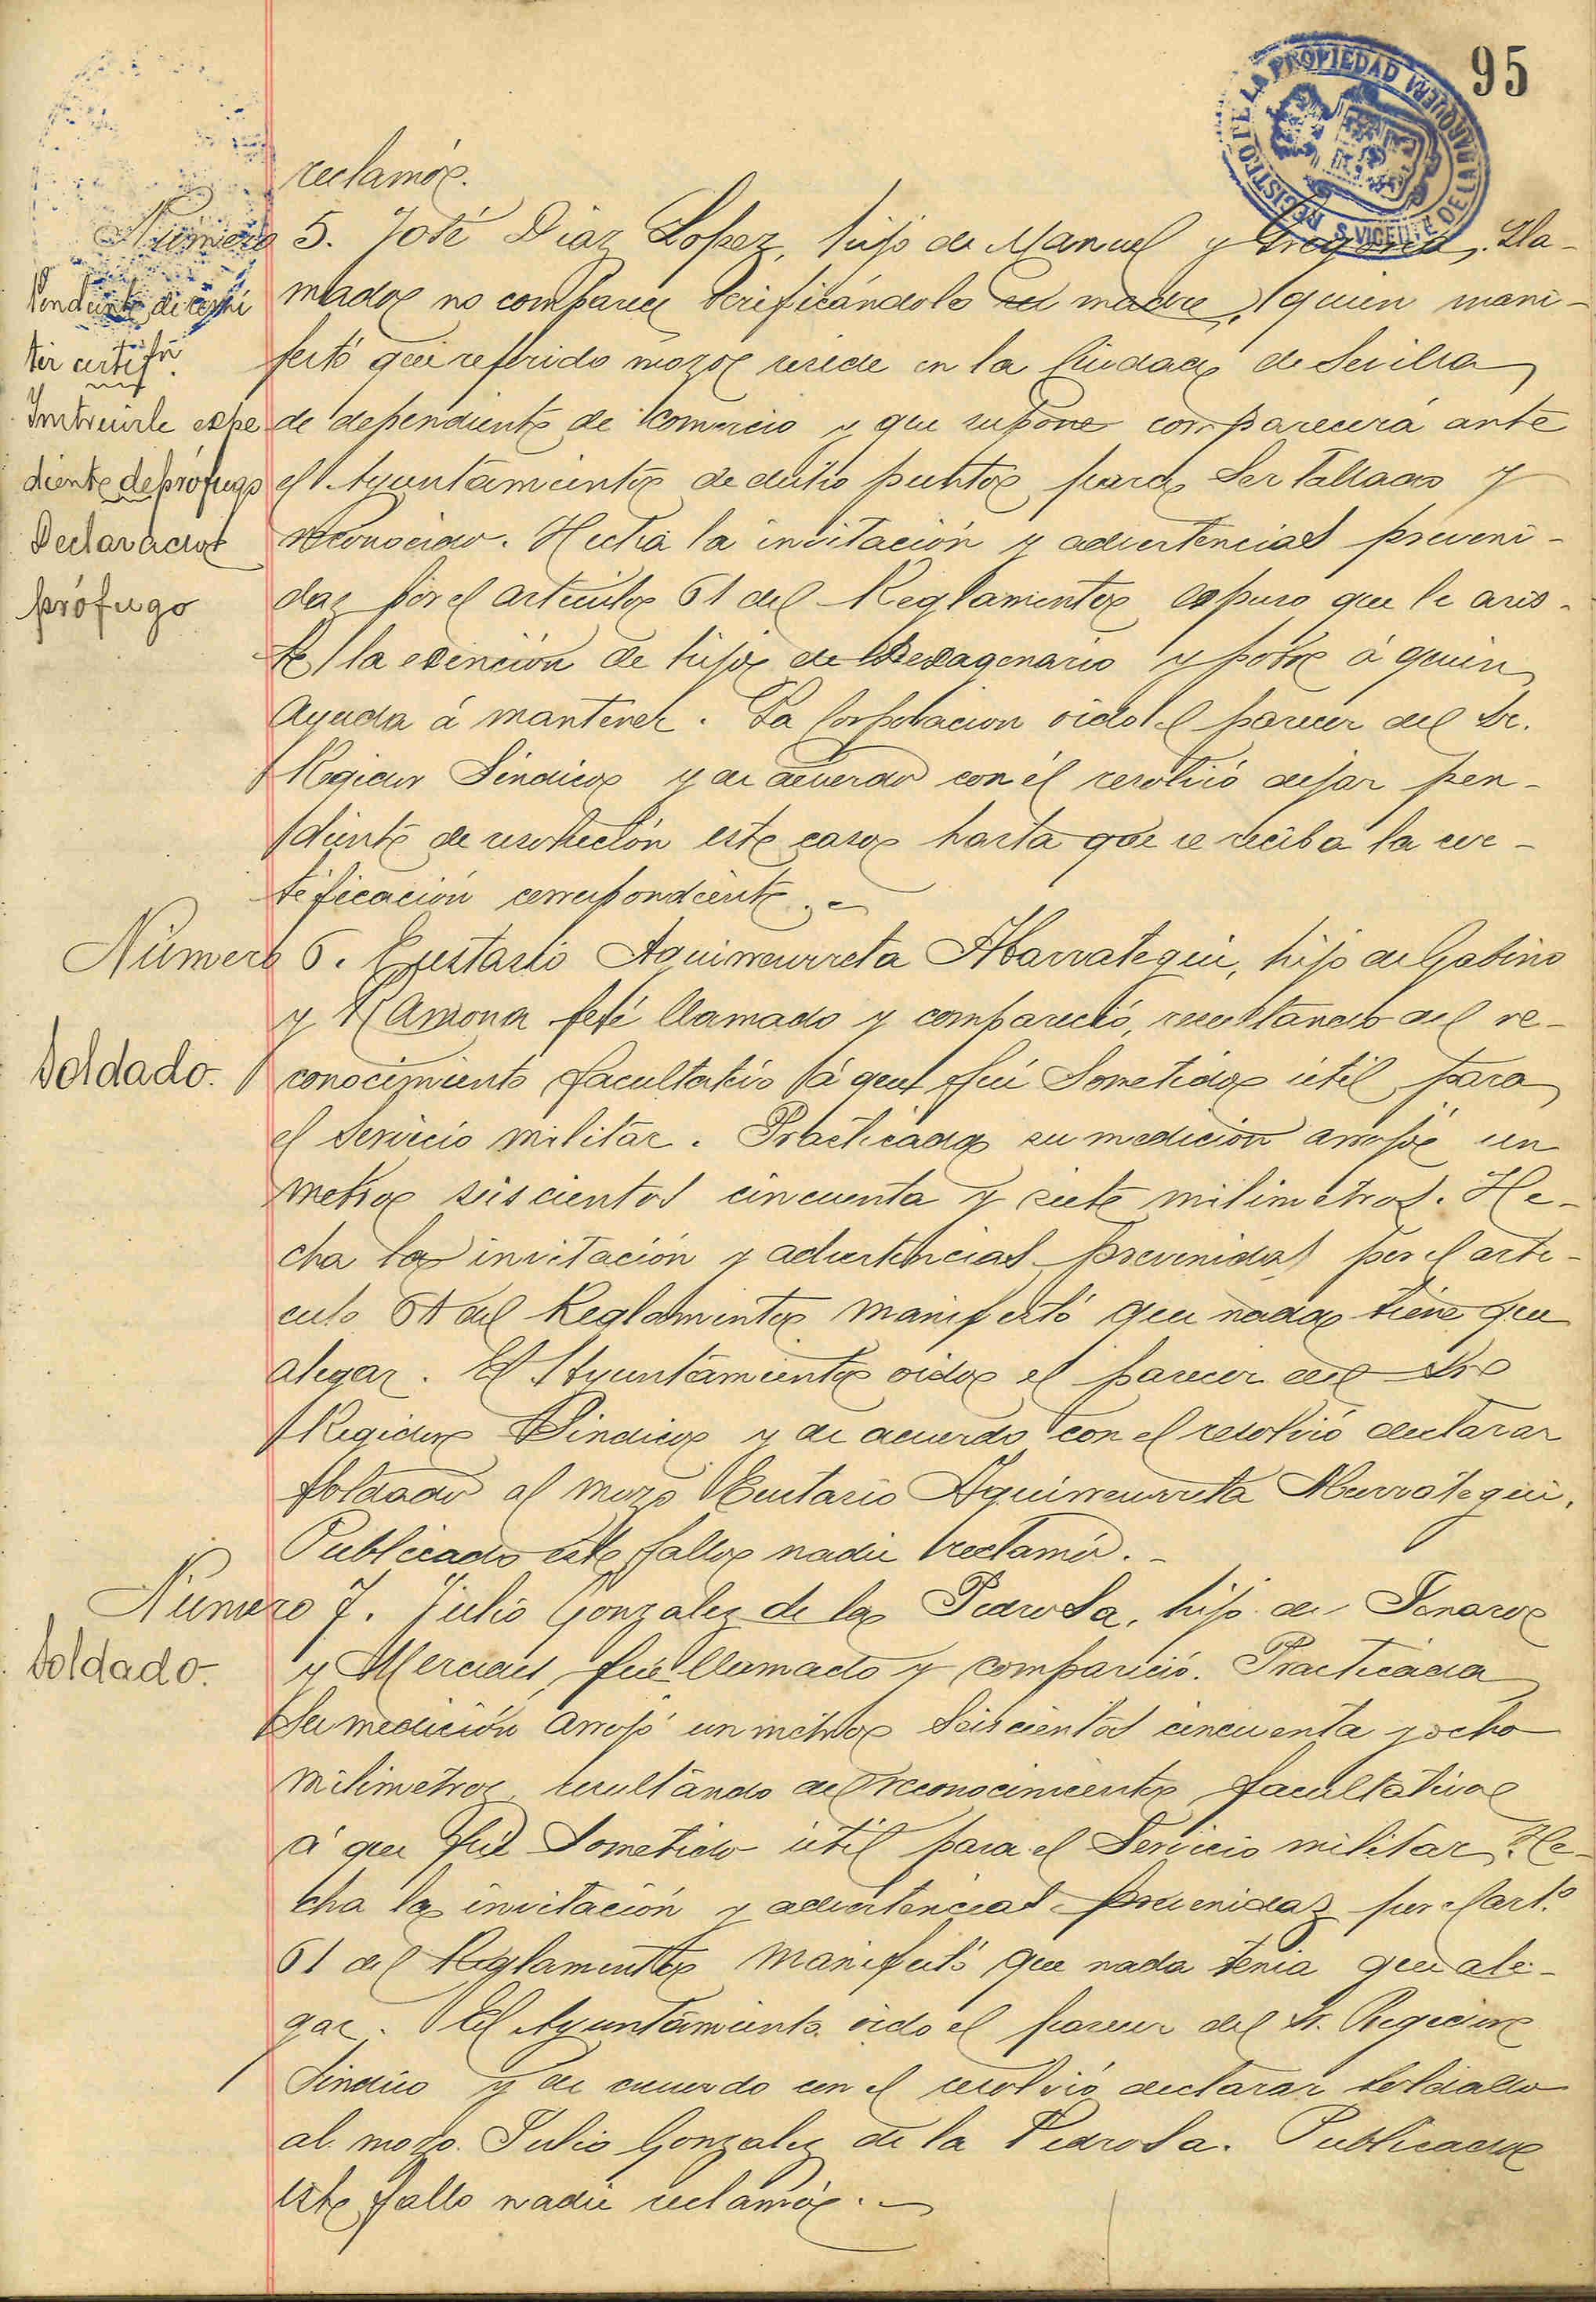 95
REGISTRO DE LA PROPIEDAD
S. VICENTE DE LA BARQUERA
reclamó.
Número 5. José Diaz Lopez, hijo de Manuel y Gregoria, Lla-
mado no comparece verificándolo su madre, quien mani-
festó que referido mozo reside en la Ciudad de Sevilla
de dependiente de comercio y que supone comparecerá ante
el Ayuntamiento de dicho punto para ser tallado y
reconocido. Hecha la invitación y advertencias preveni-
das por el articulo 61 del Reglamento expuso que le asis-
te la exención de hijo de Sexagenario y pobre á quien
ayuda á mantener. La Corporacion oido el parecer del Sr.
Regidor Síndico y de acuerdo con él resolvió dejar pen-
diente de resolución este caso hasta que se reciba la cer-
tificación correspondiente.
Pendiente de remi
tir certifn.
Instruirle expe
diente de prófugo
Declarado
prófugo
Número 6. Eustasio Aguirreurreta Abarrategui, hijo de Gabino
y Ramona fué llamado y compareció, resultando del re-
conocimiento facultativo á que fué sometido útil para
el servicio militar. Practicada su medición arrojó un
metro seiscientos cincuenta y siete milimetros. He-
cha la invitación y advertencias prevenidas por el arti-
culo 61 del Reglamento manifestó que nada tiene que
alegar. El Ayuntamiento oido el parecer del Sr.
Regidor Sindico y de acuerdo con el resolvió declarar
soldado al mozo Eustasio Aguirreurreta Abarrategui.
Publicado este fallo nadie reclamó.
Soldado.
Número 7. Julio Gonzalez de la Pedrosa, hijo de Genaro
y Mercedes, fué llamado y compareció. Practicada
su medición arrojó un metro seiscientos cincuenta y ocho
milimetros, resultando del reconocimiento facultativo
á que fué sometido útil para el servicio militar. He-
cha la invitación y advertencias prevenidas por el artº.
61 del Reglamento manifestó que nada tenia que ale-
gar. El Ayuntamiento oido el parecer del Sr. Regidor
Síndico y de acuerdo con el resolvió declarar soldado
al mozo Julio Gonzalez de la Pedrosa. Publicado
este fallo nadie reclamó.
Soldado.